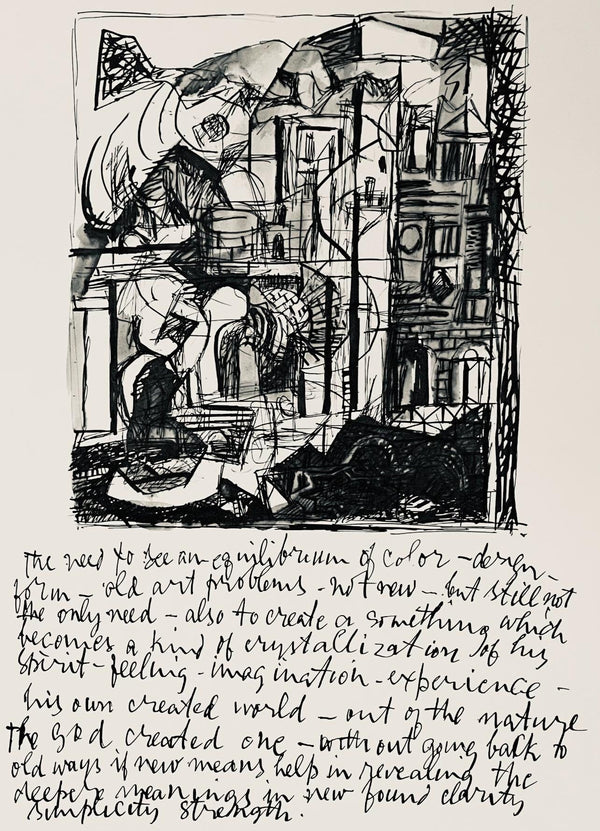 The need to see an equilibrium of color - design -
form - old art problems - not new - but still not
the only need - also to create a something which
becomes a kind of crystallization of his
spirit - feeling - imagination - experience -
his own created world - out of the nature
The God created one - without going back to
old ways if new means help in revealing the
deeper meanings in new found clarity
simplicity strength.